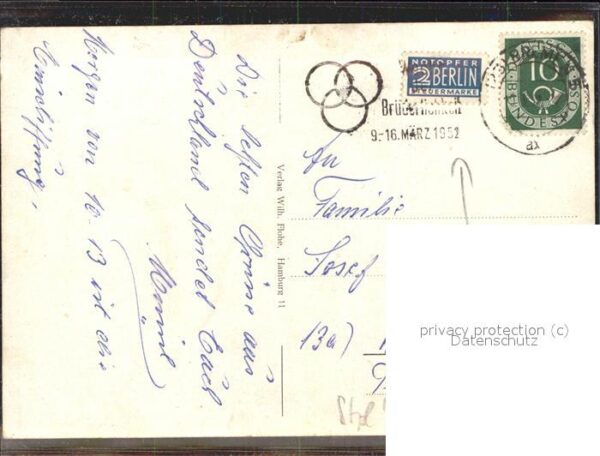 Die besten Grüße aus
Deutschland sendet Euch
Morgen von 10-13 ist die
Einschiffung,
Verlag Wilh. Flohe, Hamburg 11
NOTOPFER
2 BERLIN
STEUERMARKE
Brüderlichkeit
9.-16. MÄRZ 1952
10
BUNDESPOST
ax
An
Familie
Josef
13a)
privacy protection (c)
Datenschutz